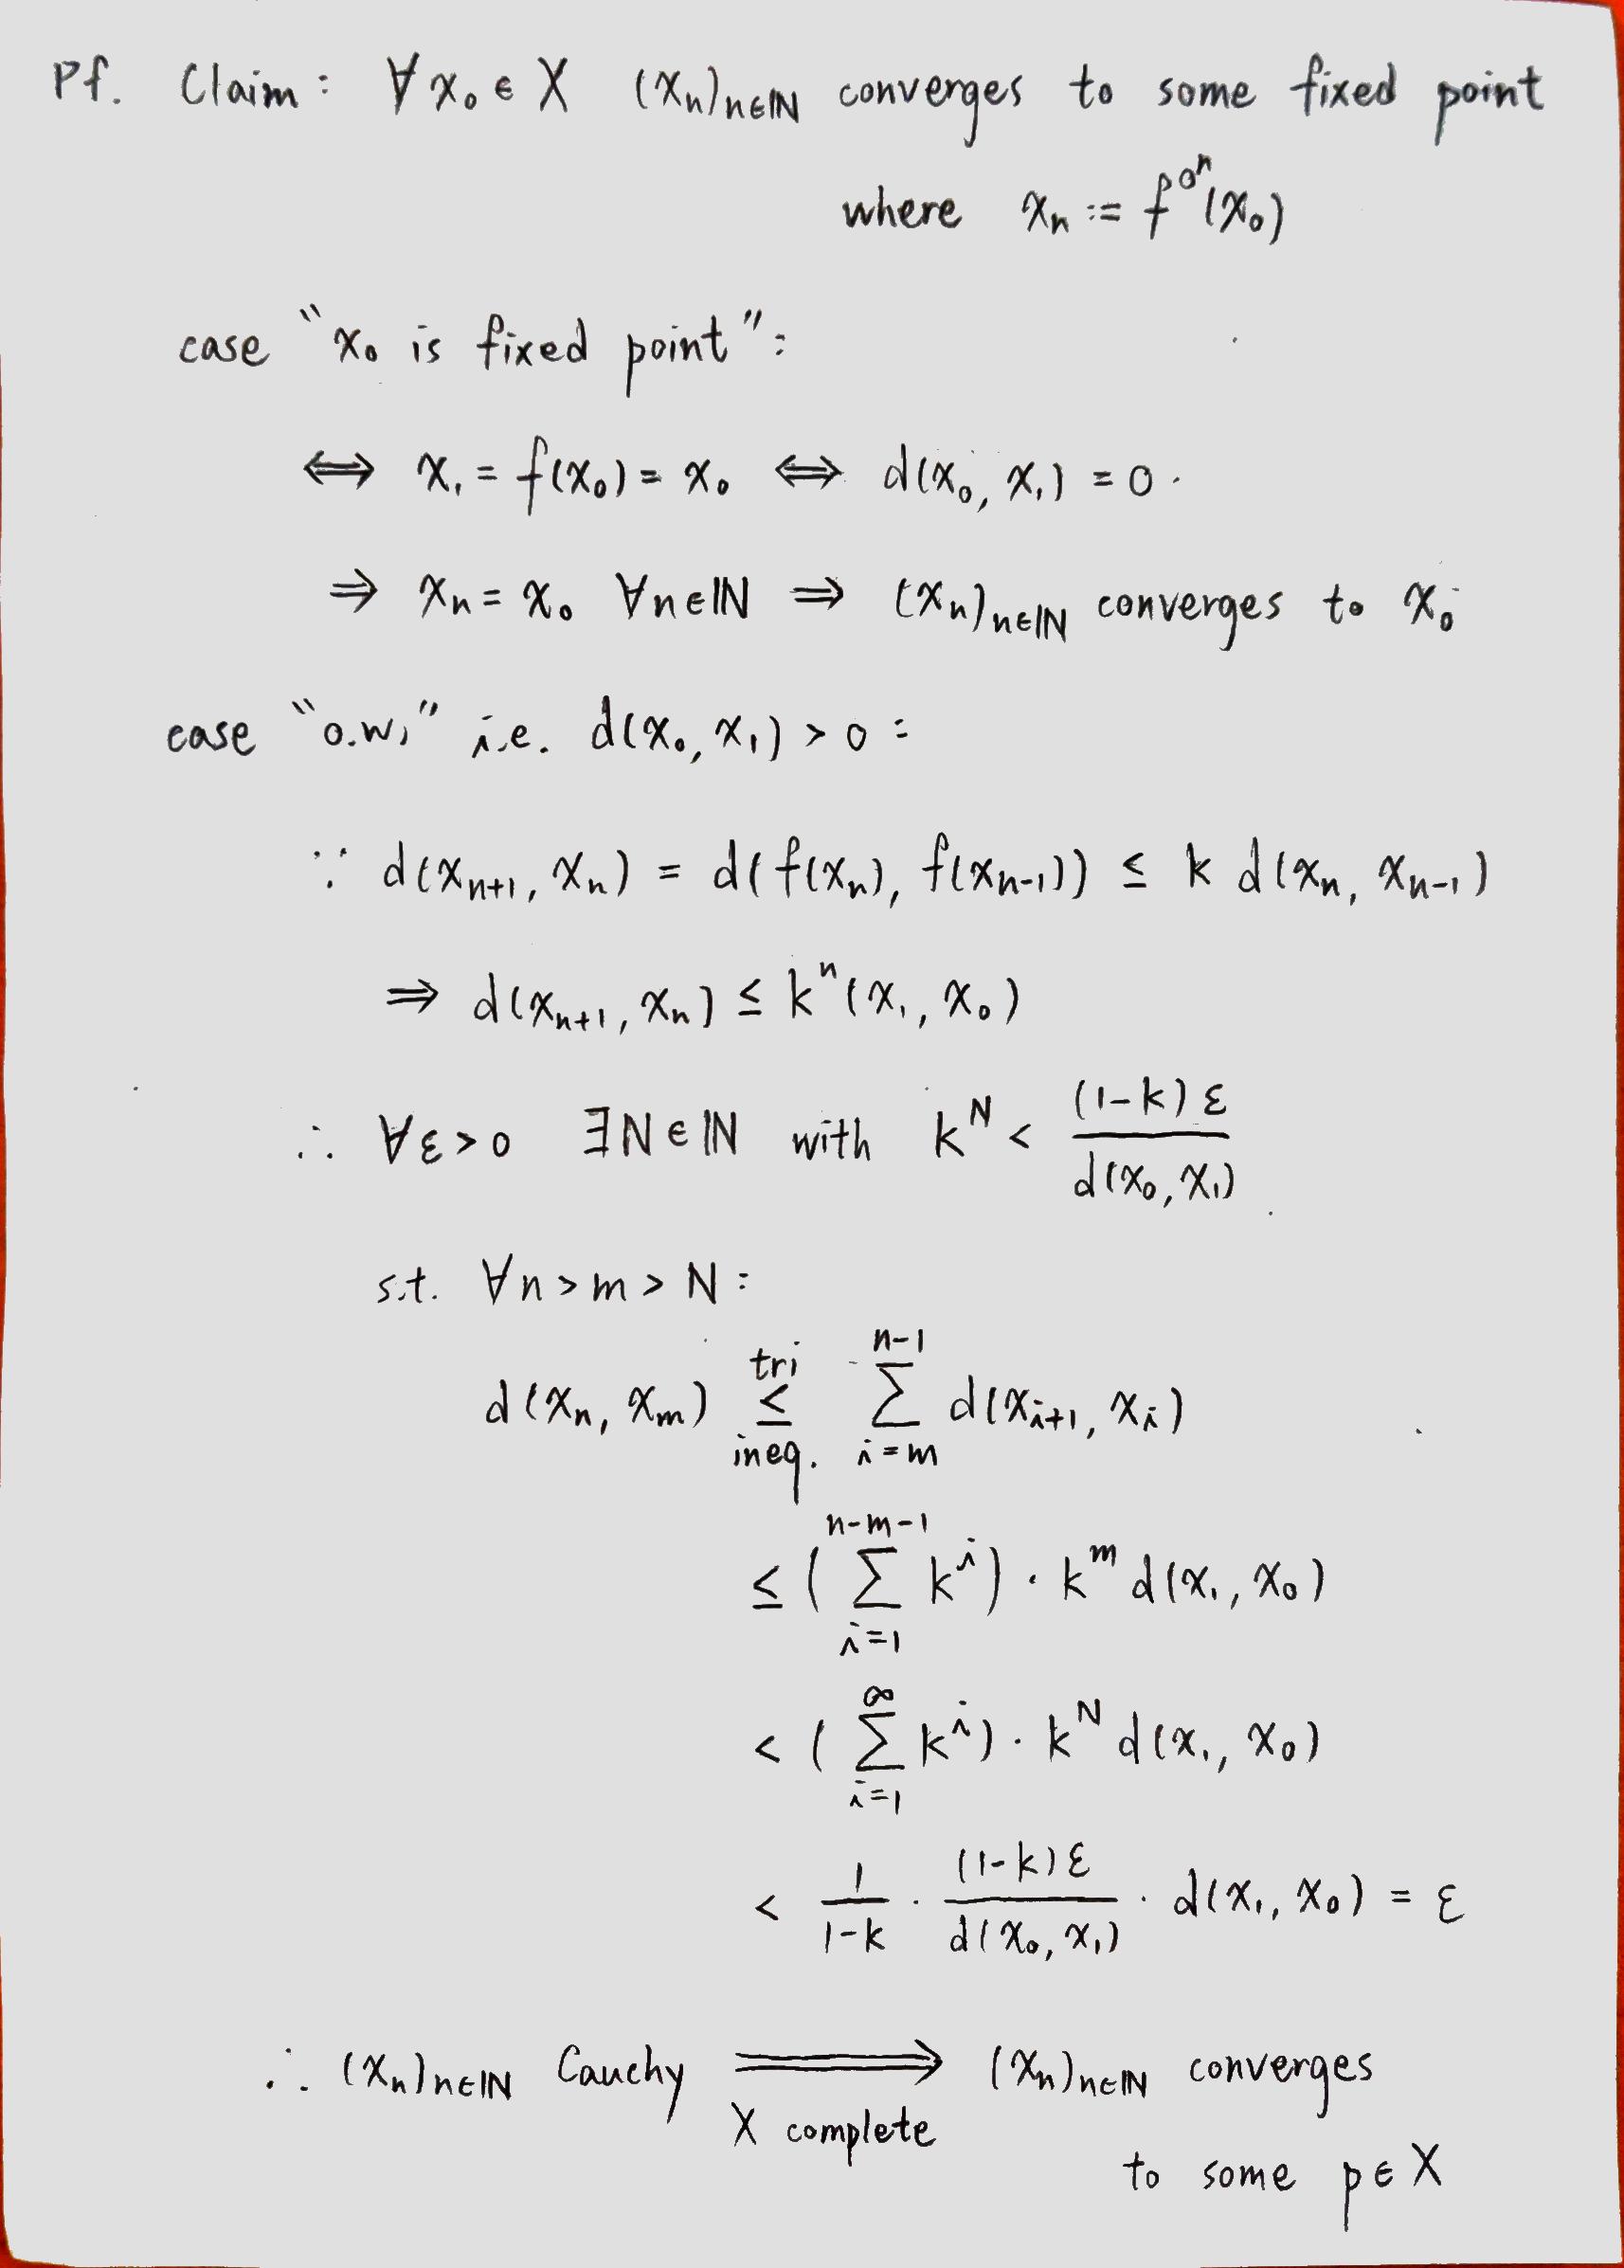 Pf. Claim: ∀ x₀ ∈ X (xₙ)ₙ∈ℕ converges to some fixed point
where xₙ := f^{∘n}(x₀)
case "x₀ is fixed point":
⟺ x₁ = f(x₀) = x₀ ⟺ d(x₀, x₁) = 0.
⇒ xₙ = x₀ ∀n∈ℕ ⇒ (xₙ)ₙ∈ℕ converges to x₀
case "o.w." i.e. d(x₀, x₁) > 0 :
∵ d(xₙ₊₁, xₙ) = d(f(xₙ), f(xₙ₋₁)) ≤ k d(xₙ, xₙ₋₁)
⇒ d(xₙ₊₁, xₙ) ≤ kⁿ(x₁, x₀)
∴ ∀ε>0 ∃N∈ℕ with k^N < \frac{(1-k)ε}{d(x₀, x₁)}
s.t. ∀n>m>N :
d(xₙ, xₘ) \overset{tri}{\underset{ineq.}{≤}} \sum_{i=m}^{n-1} d(x_{i+1}, x_i)
≤ (\sum_{i=1}^{n-m-1} k^i) · k^m d(x₁, x₀)
< (\sum_{i=1}^{∞} k^i) · k^N d(x₁, x₀)
< \frac{1}{1-k} · \frac{(1-k)ε}{d(x₀, x₁)} · d(x₁, x₀) = ε
∴ (xₙ)ₙ∈ℕ Cauchy \xRightarrow[X complete]{} (xₙ)ₙ∈ℕ converges
to some p∈X